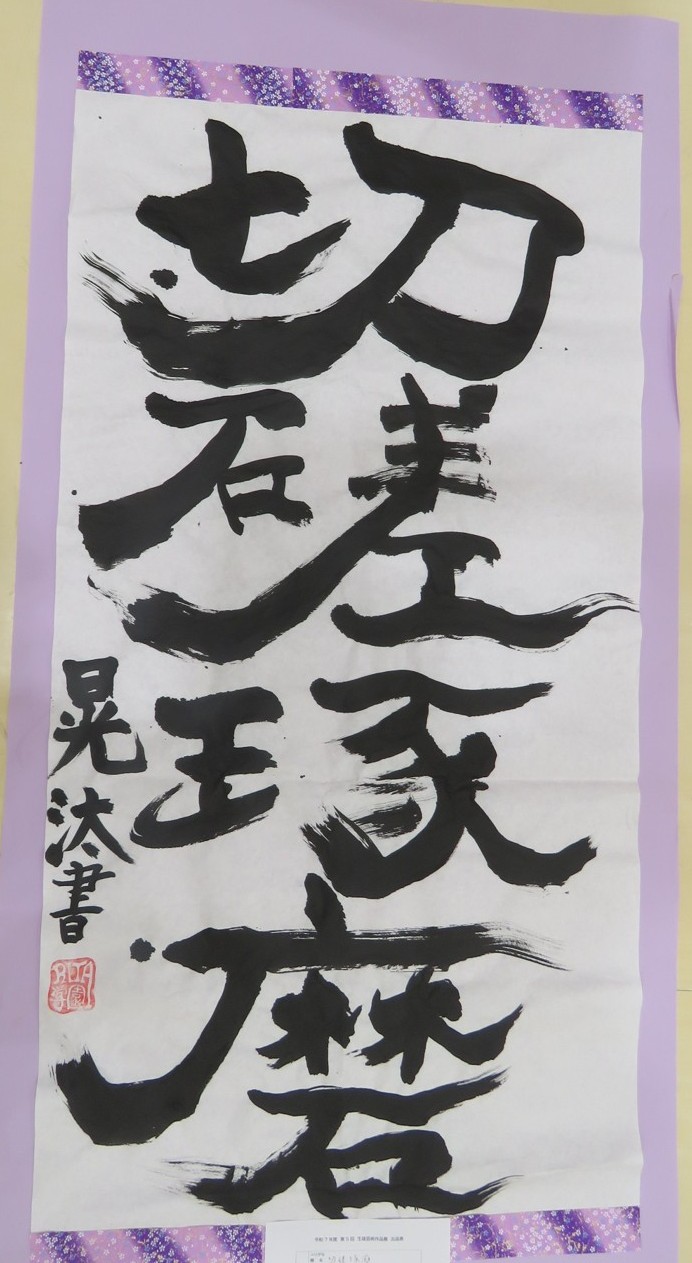 切磋琢磨
晃汰書